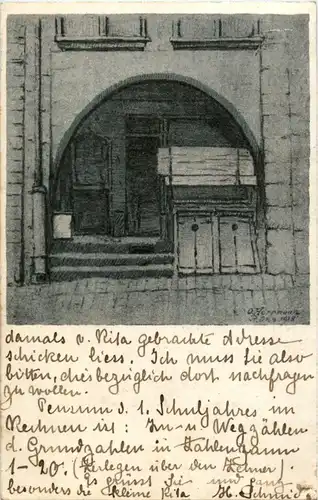 damals v. Rita gebrachte Adresse
schicken liess. Ich muss Sie also
bitten, diesbezüglich dort nachfragen
zu wollen.
Pensum d. 1. Schuljahres im
Rechnen ist: Zu- u. Wegzählen
d. Grundzahlen im Zahlenraum
1-20. (Zerlegen über den Zehner)
Es grüsst Sie und ganz
besonders die kleine Rita